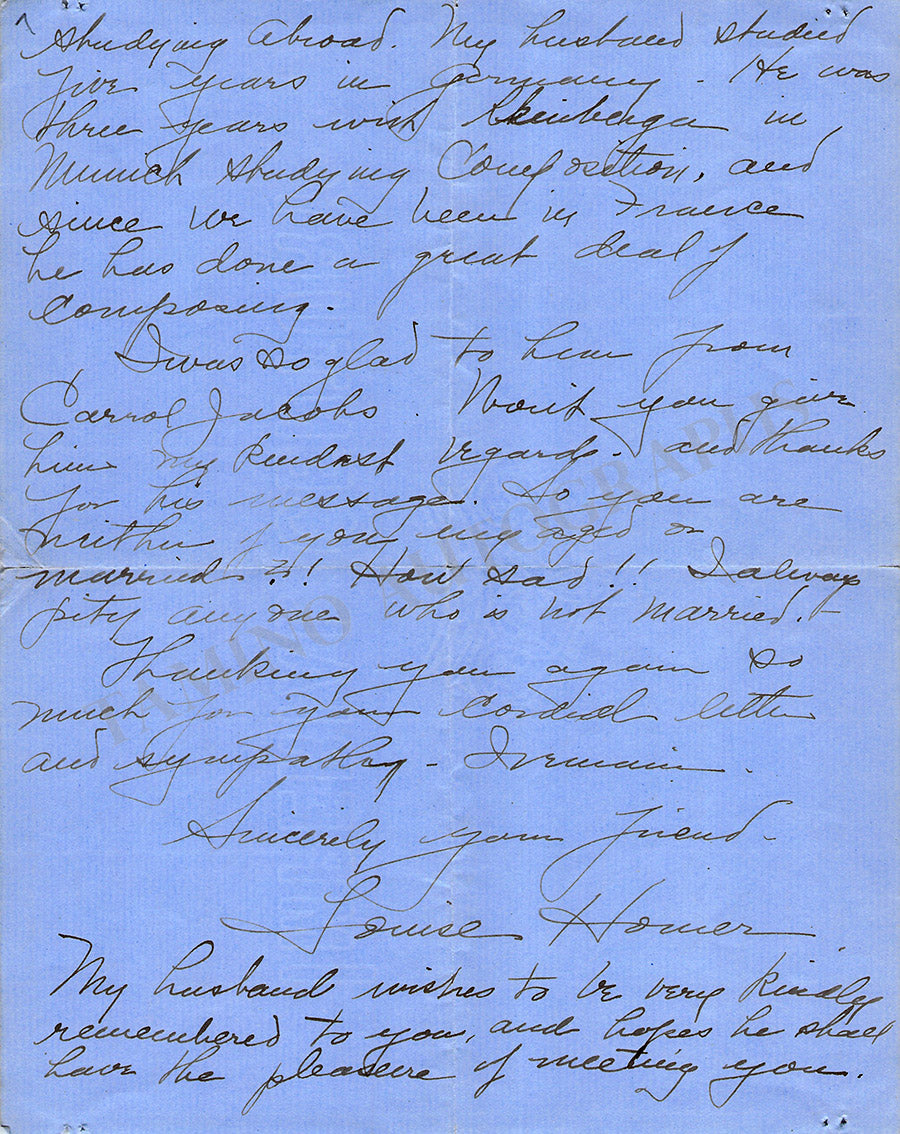 studying abroad. My husband studied
five years in Germany - He was
three years with Rheinberger in
Munich studying Composition, and
since we have been in France
he has done a great deal of
composing.
I was so glad to hear from
Carrol Jacobs. Won't you give
him my kindest regards - and thanks
for his message. So you are
neither of you engaged or
married?!! How sad!! I always
pity anyone who is not married. -
Thanking you again so
much for your cordial letter
and sympathy - I remain.
Sincerely your friend -
Louise Homer.
My husband wishes to be very kindly
remembered to you, and hopes he shall
have the pleasure of meeting you.
TAMINO AUTOGRAPHS